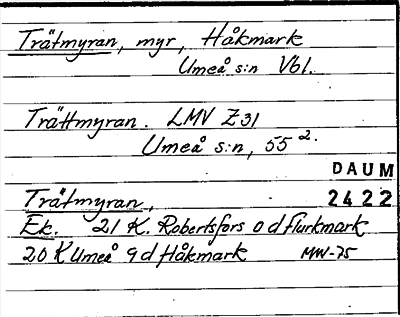 Trätmyran, myr, Håkmark
Umeå s:n Vbl.
Trättmyran. LMV Z31
Umeå s:n, 55 2.
DAUM
2422
Trätmyran,
Ek. 21 K. Robertsfors 0 d flurkmark
20 K Umeå 9 d Håkmark MW-75